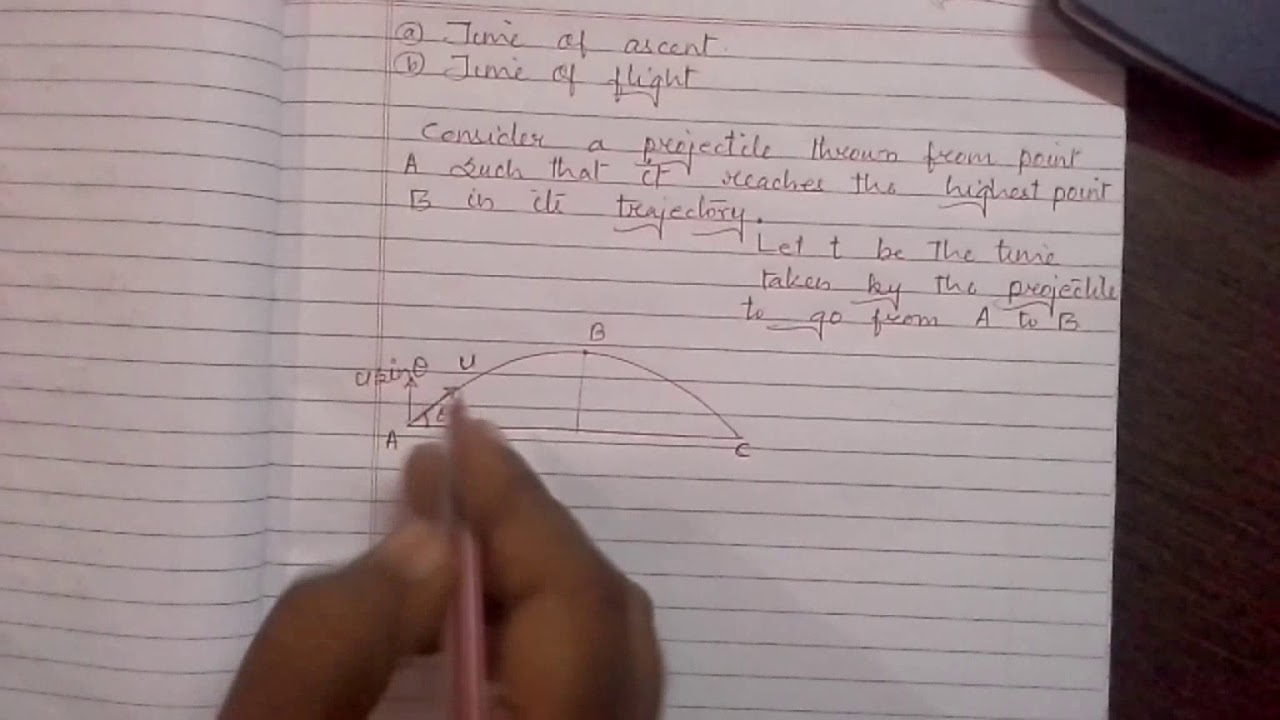 (a) Time of ascent.
(b) Time of flight
Consider a projectile thrown from point
A such that it reaches the highest point
B in its trajectory.
Let t be the time
taken by the projectile
to go from A to B
B
usinθ U
A C